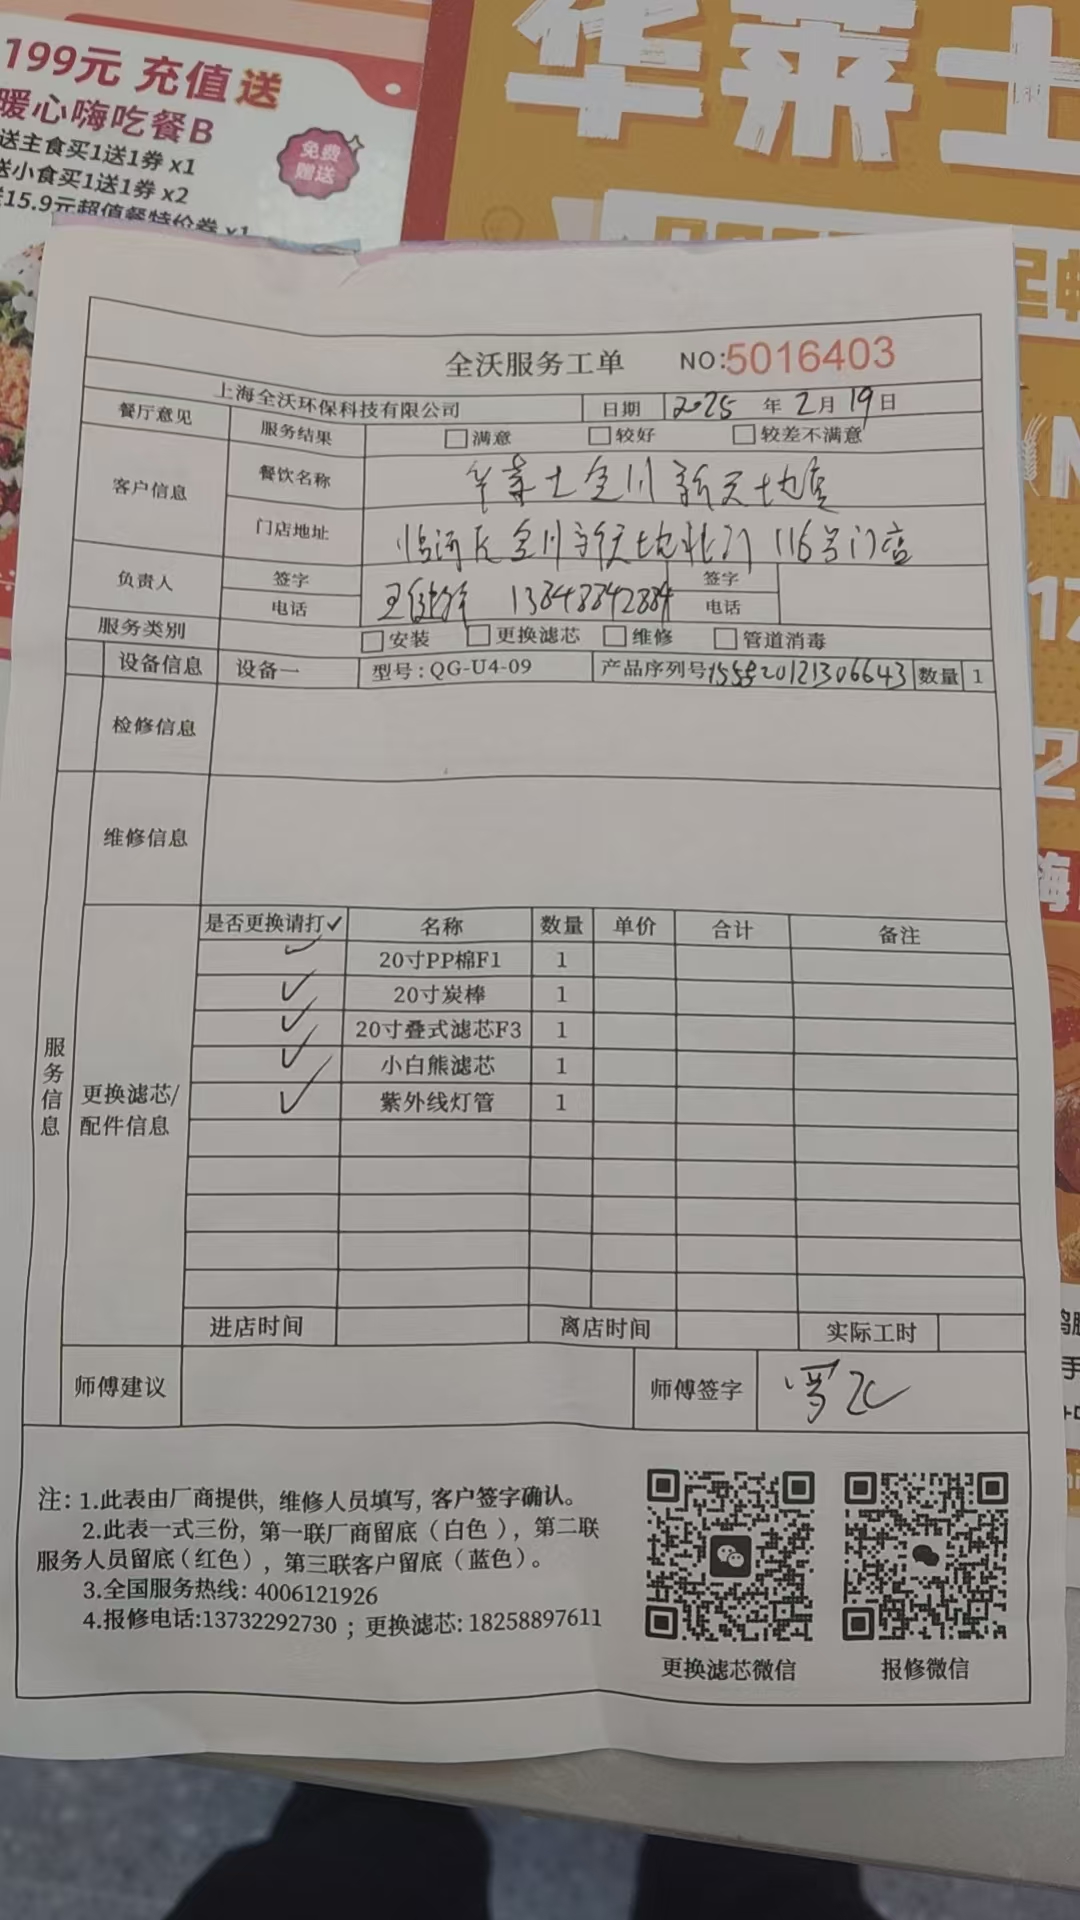 199元 充值送
暖心嗨吃餐B
送主食买1送1券 x1
送小食买1送1券 x2
15.9元超值餐特价券 x1
免费
赠送
华莱士
全沃服务工单 NO:5016403
上海全沃环保科技有限公司 日期 2025 年 2 月 19 日
餐厅意见 服务结果 满意 较好 较差不满意
客户信息 餐饮名称 华莱士金川新天地店
门店地址 临河区金川新天地北门 116号门店
负责人 签字 签字
电话 13848842884 电话
服务类别 安装 更换滤芯 维修 管道消毒
设备信息 设备一 型号:QG-U4-09 产品序列号 数量 1
检修信息
维修信息
服务信息
更换滤芯/
配件信息
是否更换请打✓ 名称 数量 单价 合计 备注
✓ 20寸PP棉F1 1
✓ 20寸炭棒 1
✓ 20寸叠式滤芯F3 1
✓ 小白熊滤芯 1
✓ 紫外线灯管 1
进店时间 离店时间 实际工时
师傅建议 师傅签字
注: 1.此表由厂商提供, 维修人员填写, 客户签字确认。
2.此表一式三份, 第一联厂商留底 (白色 ), 第二联
服务人员留底 (红色), 第三联客户留底 (蓝色)。
3.全国服务热线: 4006121926
4.报修电话:13732292730 ; 更换滤芯: 18258897611
更换滤芯微信 报修微信